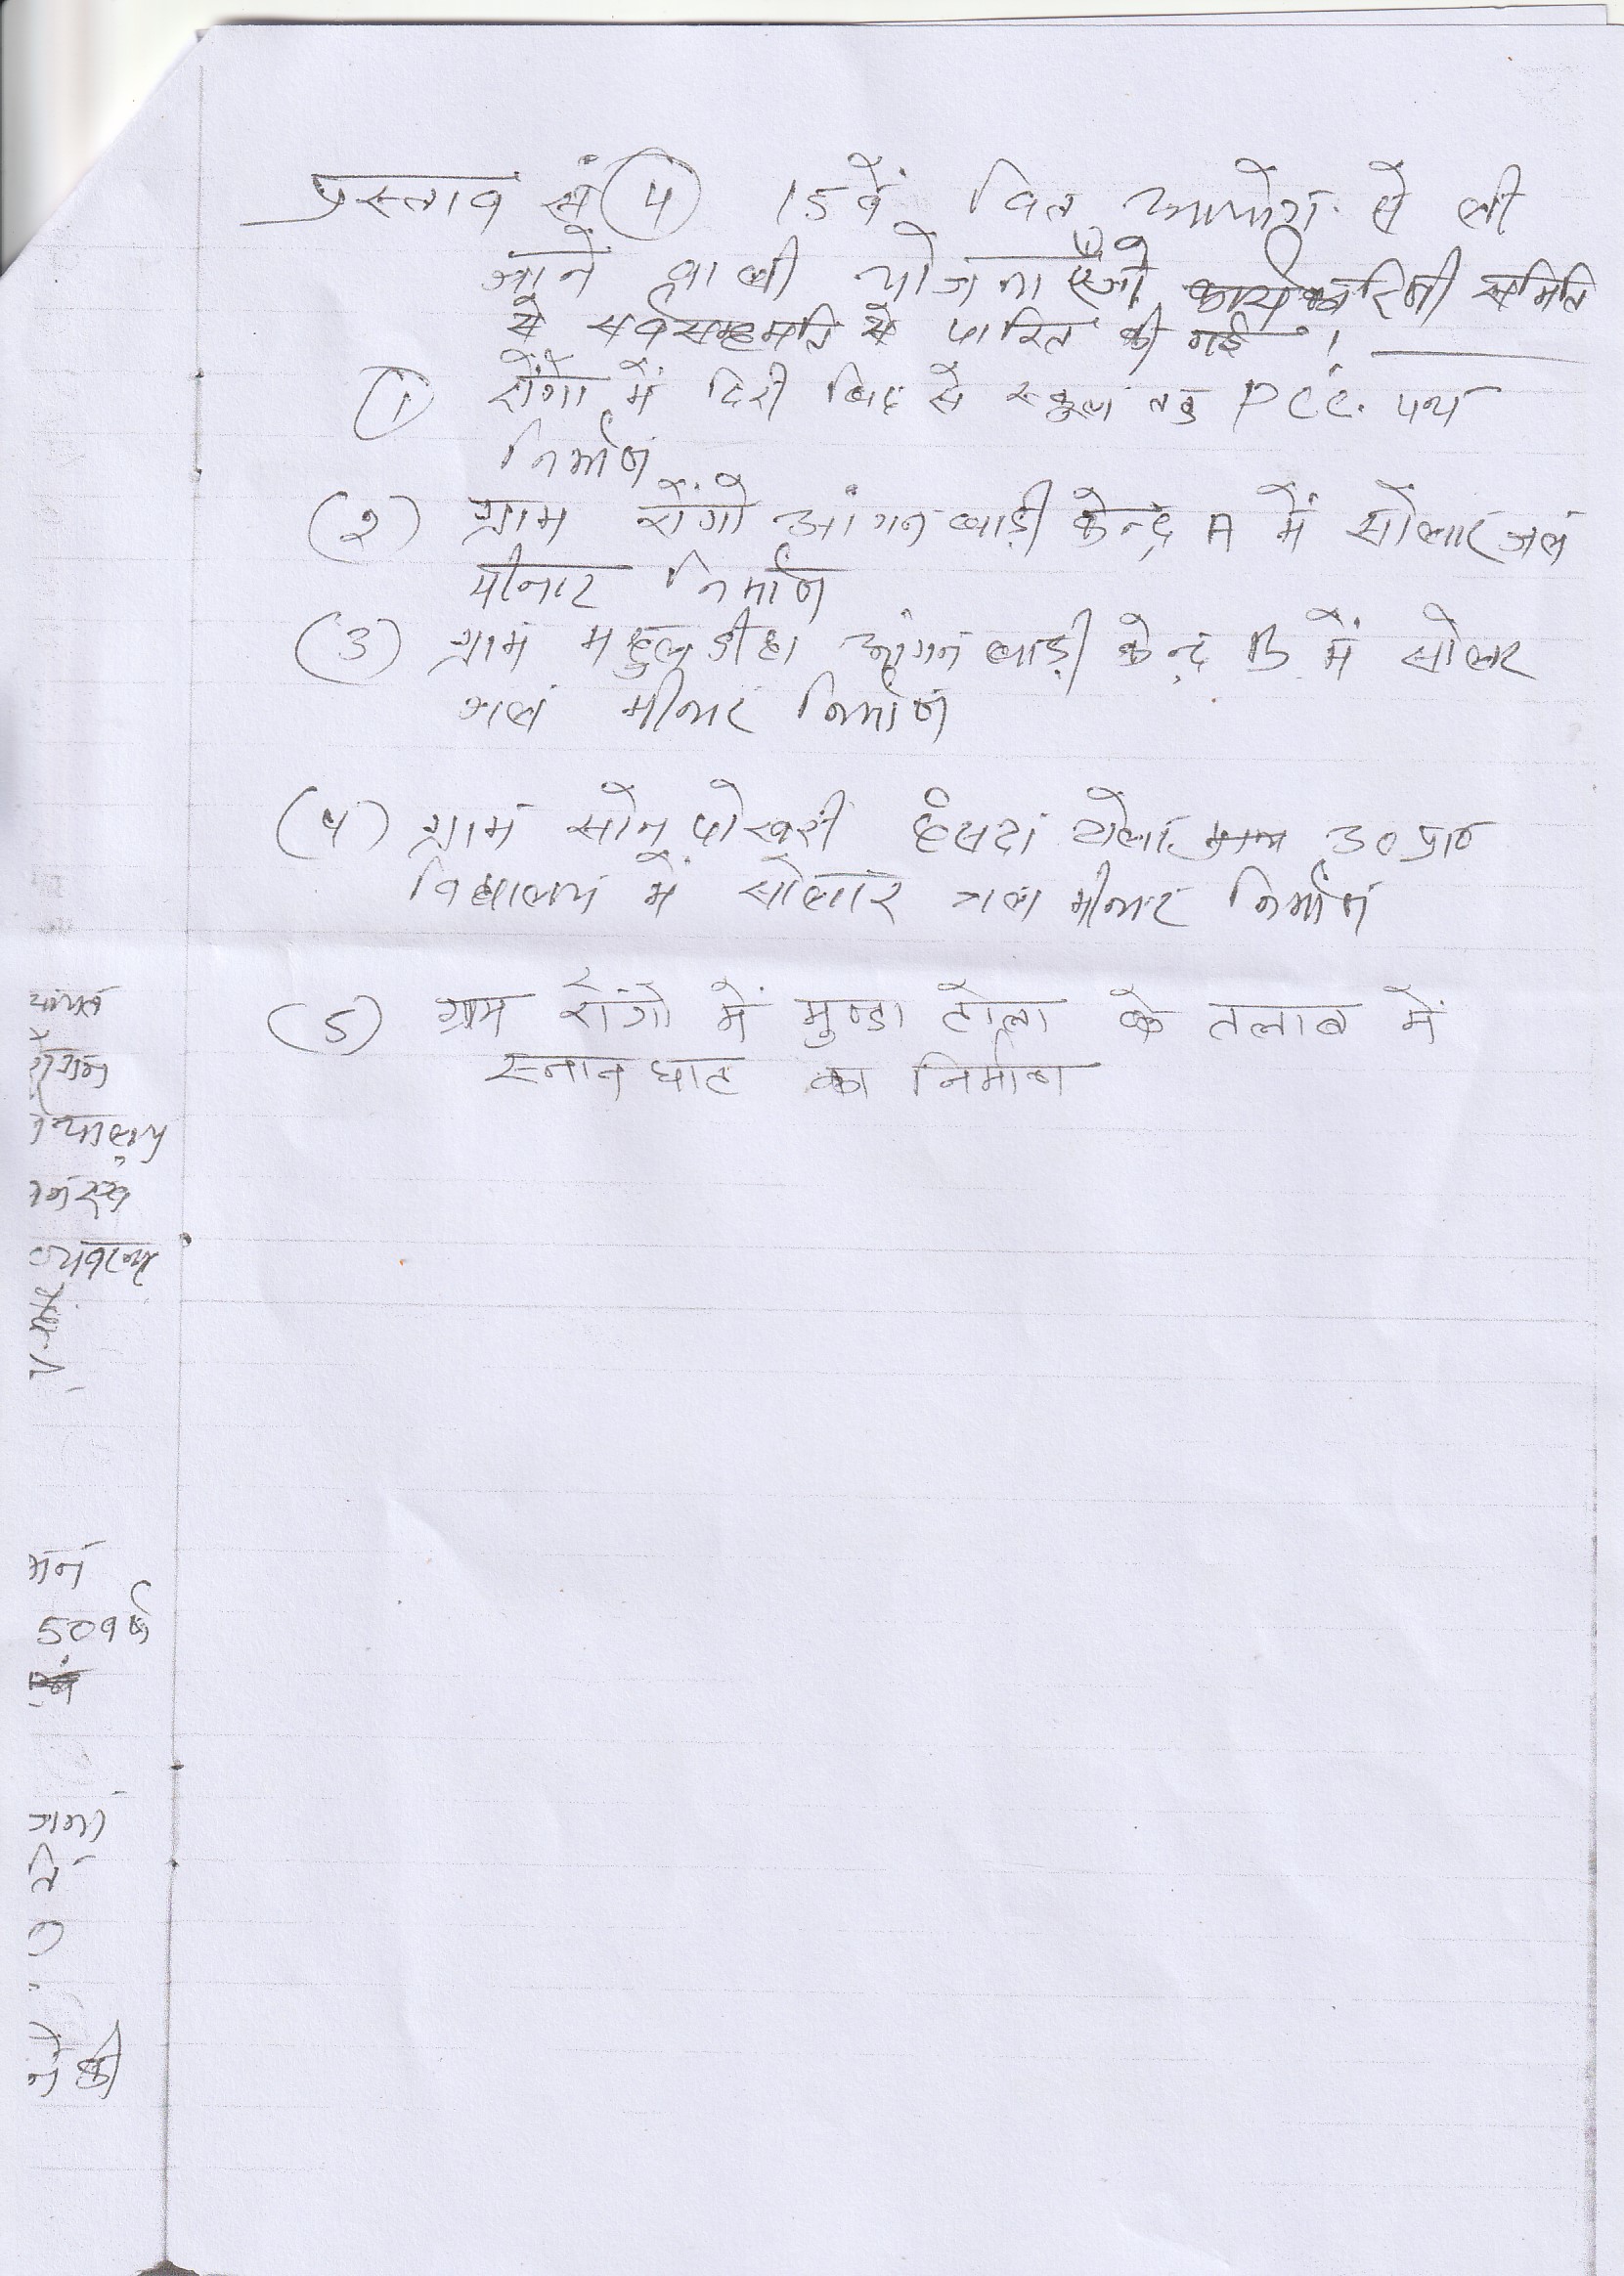 प्रस्ताव सं (4) 15वें वित आयोग से ली
जाने वाली योजनाएँ जो कार्यकारिणी समिति
से सर्वसहमति से पारित की गई ।
(1) रोंगो में दिरी बिद से स्कूल तक PCC. पथ
निर्माण
(2) ग्राम रोंगो आंगनबाड़ी केन्द्र A में सोलार जल
मीनार निर्माण
(3) ग्राम महुलडीहा आंगनबाड़ी केन्द्र B में सोलर
जल मीनार निर्माण
(4) ग्राम सोनपोखरी हंसदा टोला उ० प्रा०
विद्यालय में सोलार जल मीनार निर्माण
(5) ग्राम रोंगो में मुण्डा टोला के तलाब में
स्नान घाट का निर्माण